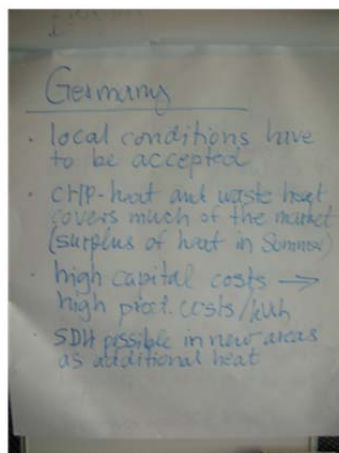 Germany
· local conditions have
to be accepted
· CHP-heat and waste heat
covers much of the market
(surplus of heat in Summer)
· high capital costs →
high prod. costs/kWh
· SDH possible in new areas
as additional heat